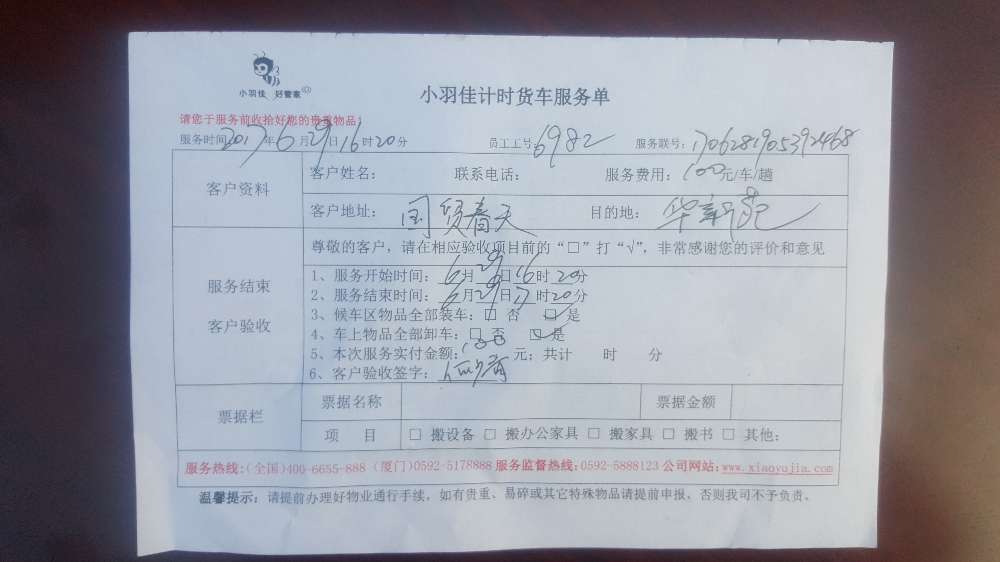 小羽佳 好管家
小羽佳计时货车服务单
请您于服务前收拾好您的贵重物品!
服务时间:2017年6月29日16时20分 员工工号:6982 服务联号:1706281905392468
客户资料
客户姓名: 联系电话: 服务费用:100元/车/趟
客户地址:国贸春天 目的地:华新苑
服务结束
客户验收
尊敬的客户,请在相应验收项目前的“□”打“√”,非常感谢您的评价和意见
1、服务开始时间:6月29日16时20分
2、服务结束时间:6月29日17时20分
3、候车区物品全部装车:□ 否 □ 是
4、车上物品全部卸车:□ 否 ☑ 是
5、本次服务实付金额:100元;共计 时 分
6、客户验收签字:
票据栏
票据名称 票据金额
项 目 □ 搬设备 □ 搬办公家具 □ 搬家具 □ 搬书 □ 其他:
服务热线:(全国)400-6655-888(厦门)0592-5178888 服务监督热线:0592-5888123 公司网站:www.xiaoyujia.com
温馨提示:请提前办理好物业通行手续,如有贵重、易碎或其它特殊物品请提前申报,否则我司不予负责。